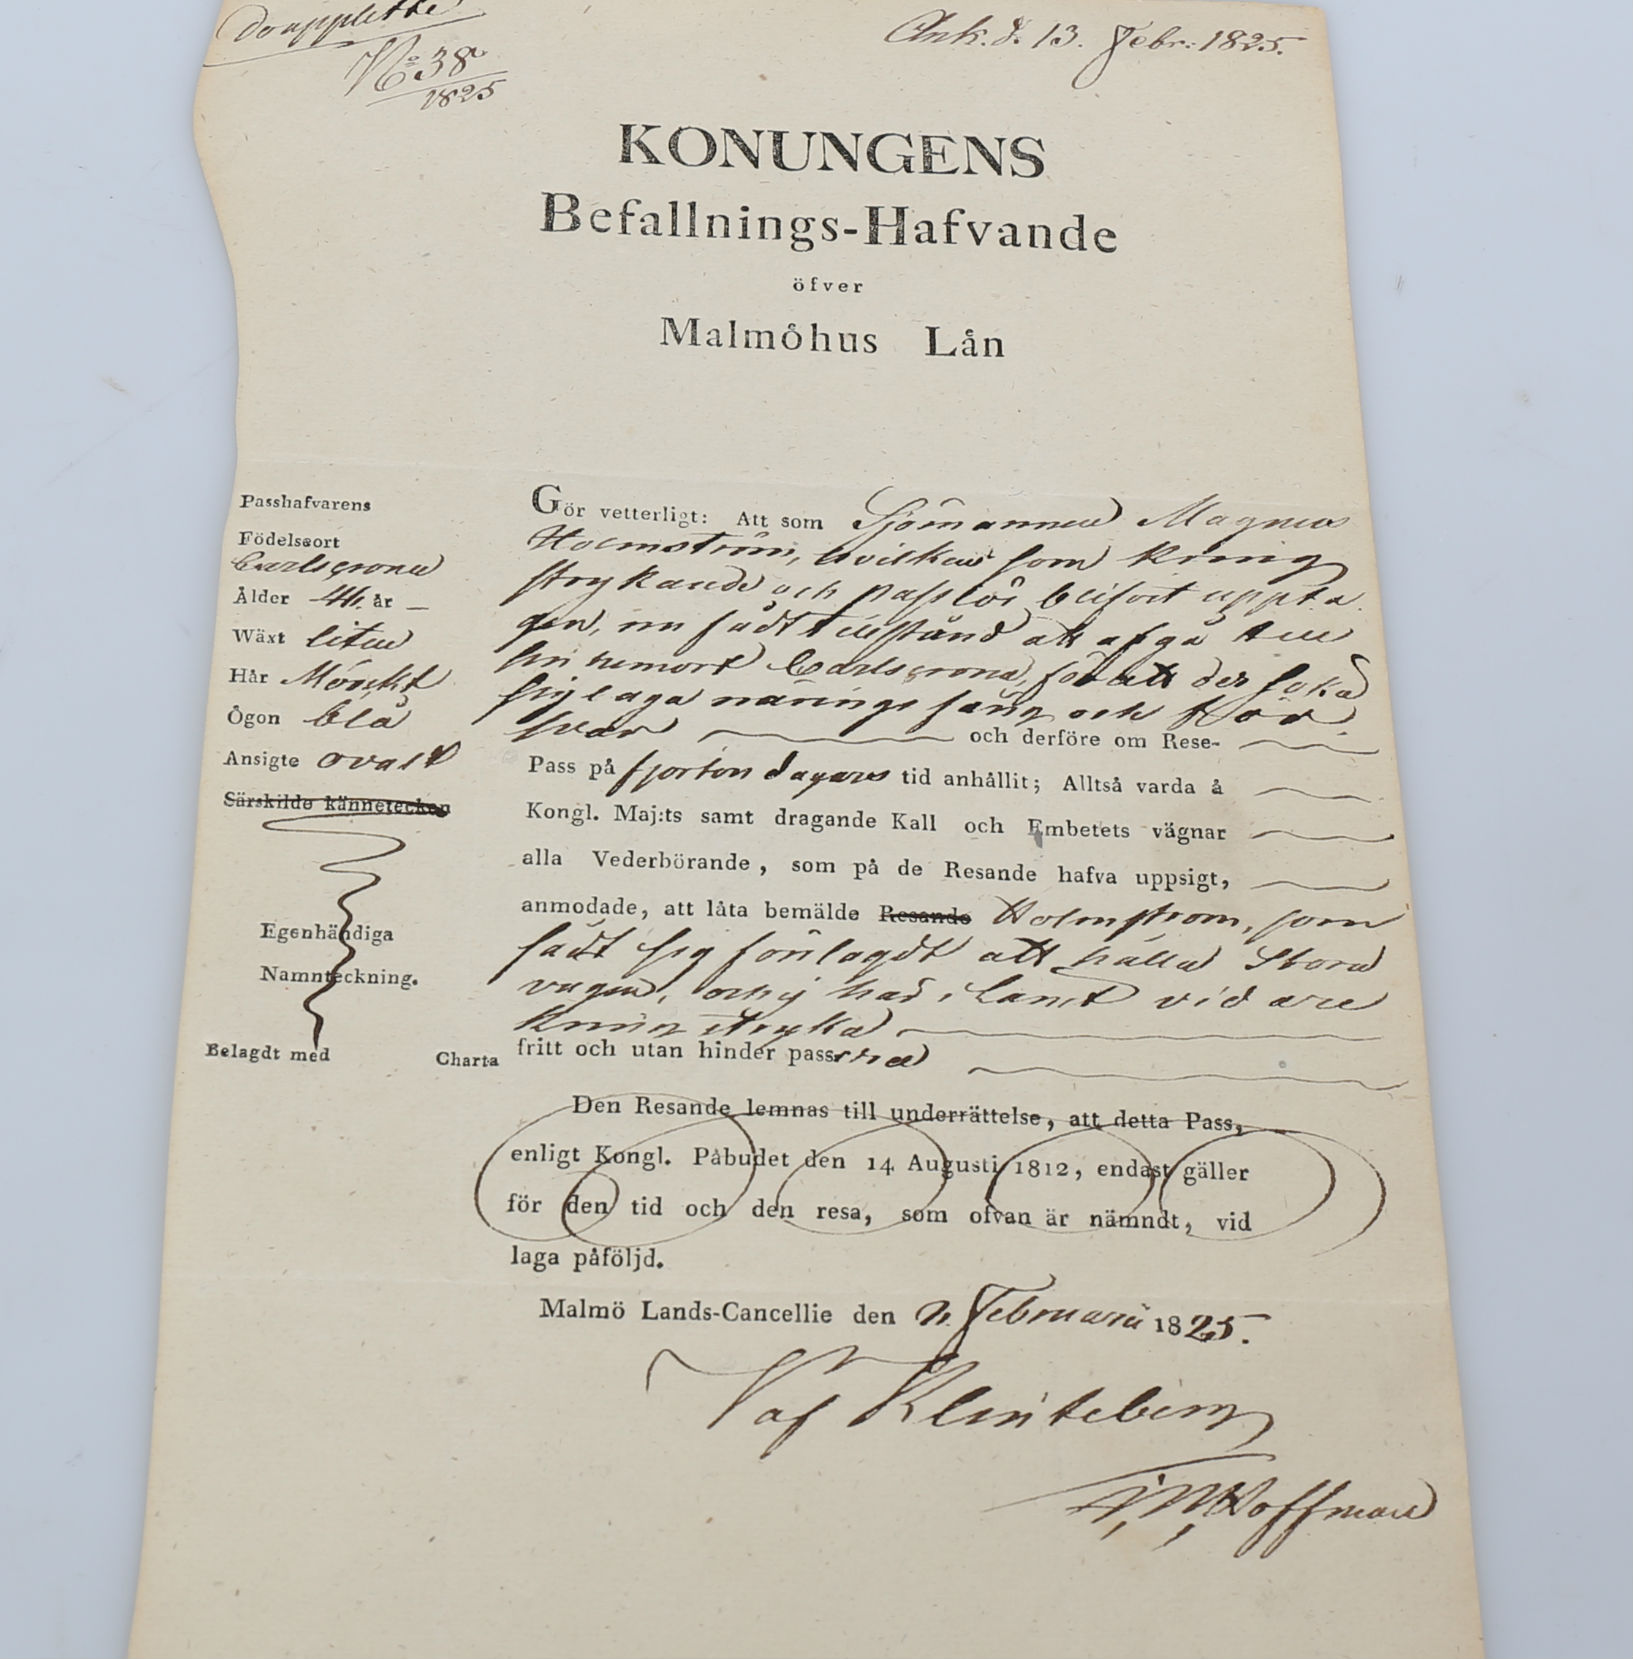 No 38
1825
Ank. d. 13. Febr: 1825.
KONUNGENS
Befallnings-Hafvande
öfver
Malmöhus Län
Passhafvarens
Födelseort
Carlscrona
Ålder 44. år
Wäxt liten
Hår Mörckt
Ögon blå
Ansigte ovalt
Särskilde kännetecken
Egenhändiga
Namnteckning.
Belagdt med Charta
Gör vetterligt: Att som Sjömannen Magnus
Holmström, hvilken som kring
strykande och passlös blifvit uppta
gen, nu fådt tillstånd att afgå till
sin hemort Carlscrona, för att der söka
sig laga närings fång och för
svar och derföre om Rese-
Pass på fjorton dagars tid anhållit; Alltså varda å
Kongl. Maj:ts samt dragande Kall och Embetets vägnar
alla Vederbörande, som på de Resande hafva uppsigt,
anmodade, att låta bemälde Resande Holmström, som
fådt sig förelagdt att hålla Stora
vägen, och ej här i Länet vidare
kring stryka
fritt och utan hinder passera
Den Resande lemnas till underrättelse, att detta Pass,
enligt Kongl. Påbudet den 14 Augusti 1812, endast gäller
för den tid och den resa, som ofvan är nämndt, vid
laga påföljd.
Malmö Lands-Cancellie den Februarii 1825.
af Klinteberg
Hoffman